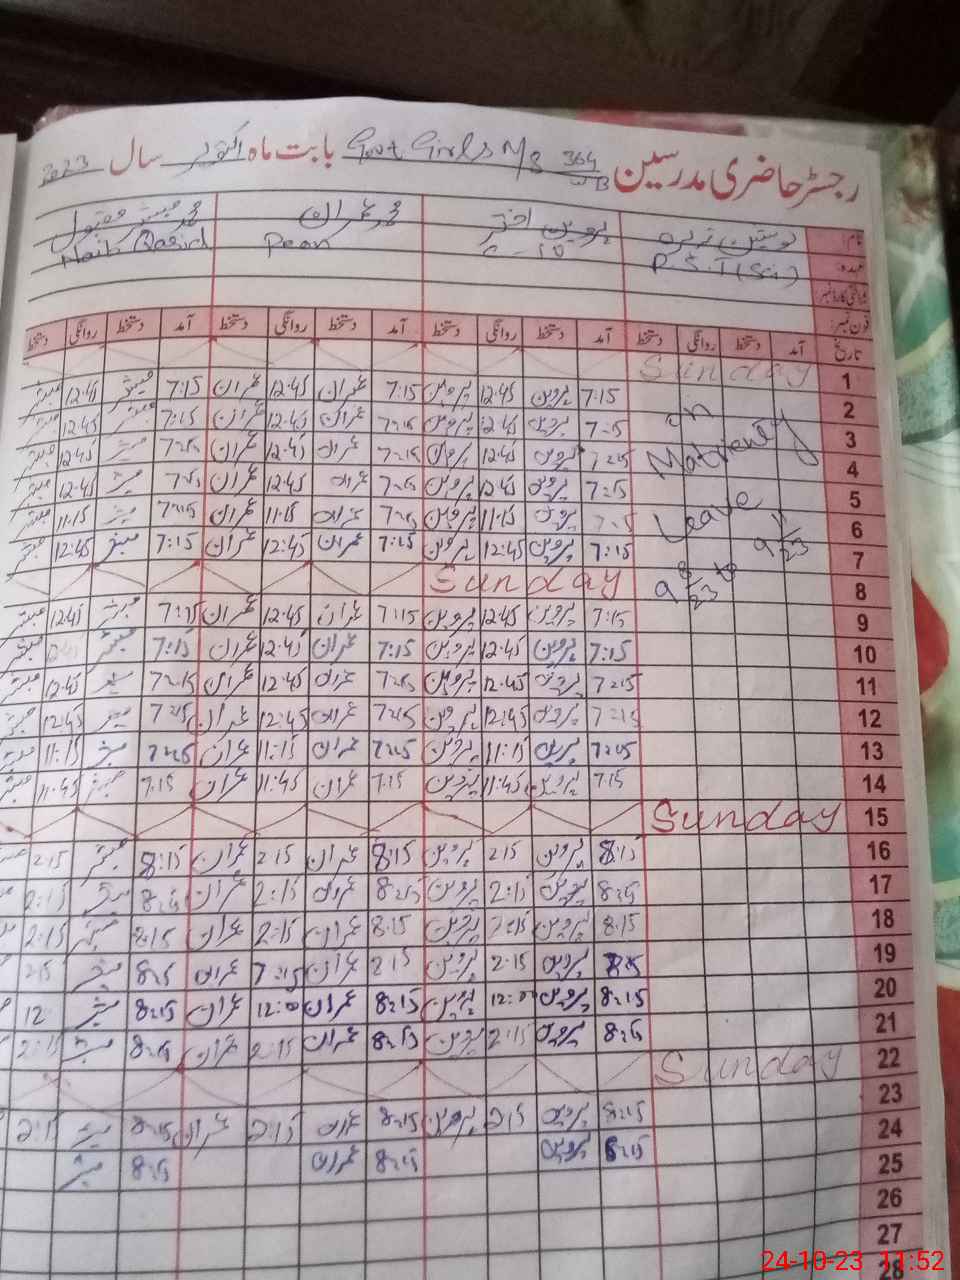 رجسٹر حاضری مدرسین Govt Girls M/S 364 WB بابت ماہ اکتوبر سال 2023
نام: پروین اختر محمد عمران محمد مبشر مقبول
عہدہ: P.S.T (Sci) Peon Naib Qasid
شناختی کارڈ نمبر
فون نمبر:
تاریخ آمد دستخط روانگی دستخط آمد دستخط روانگی دستخط آمد دستخط روانگی دستخط آمد دستخط روانگی دستخط
1 Sunday
2 7:15 پروین 12:45 پروین 7:15 عمران 12:45 عمران 7:15 مبشر 12:45 مبشر
3 on 7:15 پروین 12:45 پروین 7:15 عمران 12:45 عمران 7:15 مبشر 12:45 مبشر
4 Maternity 7:15 پروین 12:45 پروین 7:15 عمران 12:45 عمران 7:15 مبشر 12:45 مبشر
5 7:15 پروین 12:45 پروین 7:15 عمران 12:45 عمران 7:15 مبشر 12:45 مبشر
6 Leave 7:15 پروین 11:15 پروین 7:15 عمران 11:15 عمران 7:15 مبشر 11:15 مبشر
7 9 8/23 to 9 11/23 7:15 پروین 12:45 پروین 7:15 عمران 12:45 عمران 7:15 مبشر 12:45 مبشر
8 Sunday
9 7:15 پروین 12:45 پروین 7:15 عمران 12:45 عمران 7:15 مبشر 12:45 مبشر
10 7:15 پروین 12:45 پروین 7:15 عمران 12:45 عمران 7:15 مبشر مبشر
11 7:15 پروین 12:45 پروین 7:15 عمران 12:45 عمران 7:15 مبشر 12:45 مبشر
12 7:15 پروین 12:45 پروین 7:15 عمران 12:45 عمران 7:15 مبشر 12:45 مبشر
13 7:15 پروین 11:15 پروین 7:15 عمران 11:15 عمران 7:15 مبشر 11:15 مبشر
14 7:15 پروین 11:45 پروین 7:15 عمران 11:45 عمران 7:15 مبشر 11:45 مبشر
15 Sunday
16 8:15 پروین 2:15 پروین 8:15 عمران 2:15 عمران 8:15 مبشر 2:15
17 8:15 پروین 2:15 پروین 8:15 عمران 2:15 عمران 8:15 مبشر 2:15
18 8:15 پروین 2:15 پروین 8:15 عمران 2:15 عمران 8:15 مبشر 2:15
19 پروین 2:15 پروین 2:15 عمران 7:15 عمران 8:15 مبشر 2:15
20 8:15 پروین 12:00 پروین 8:15 عمران 12:00 عمران 8:15 مبشر 12
21 8:15 پروین 2:15 پروین 8:15 عمران 2:15 عمران 8:15 مبشر 2:15
22 Sunday
23 8:15 پروین 2:15 پروین 8:15 عمران 2:15 عمران 8:15 مبشر 2:15
24 8:15 پروین 8:15 عمران 8:15 مبشر
25
26
27
28
24-10-23 11:52